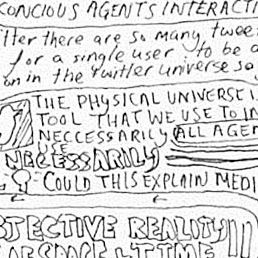 CONCIOUS AGENTS INTERACTI
tter there are so many twee
for a single user to be a
on in the Twitter universe so
THE PHYSICAL UNIVERSE IS
TOOL THAT WE USE TO IN
NECCESSARILY ALL AGEN
USE
NECESSARILY
COULD THIS EXPLAIN MEDI
JECTIVE REALITY
OF SPACE & TIME